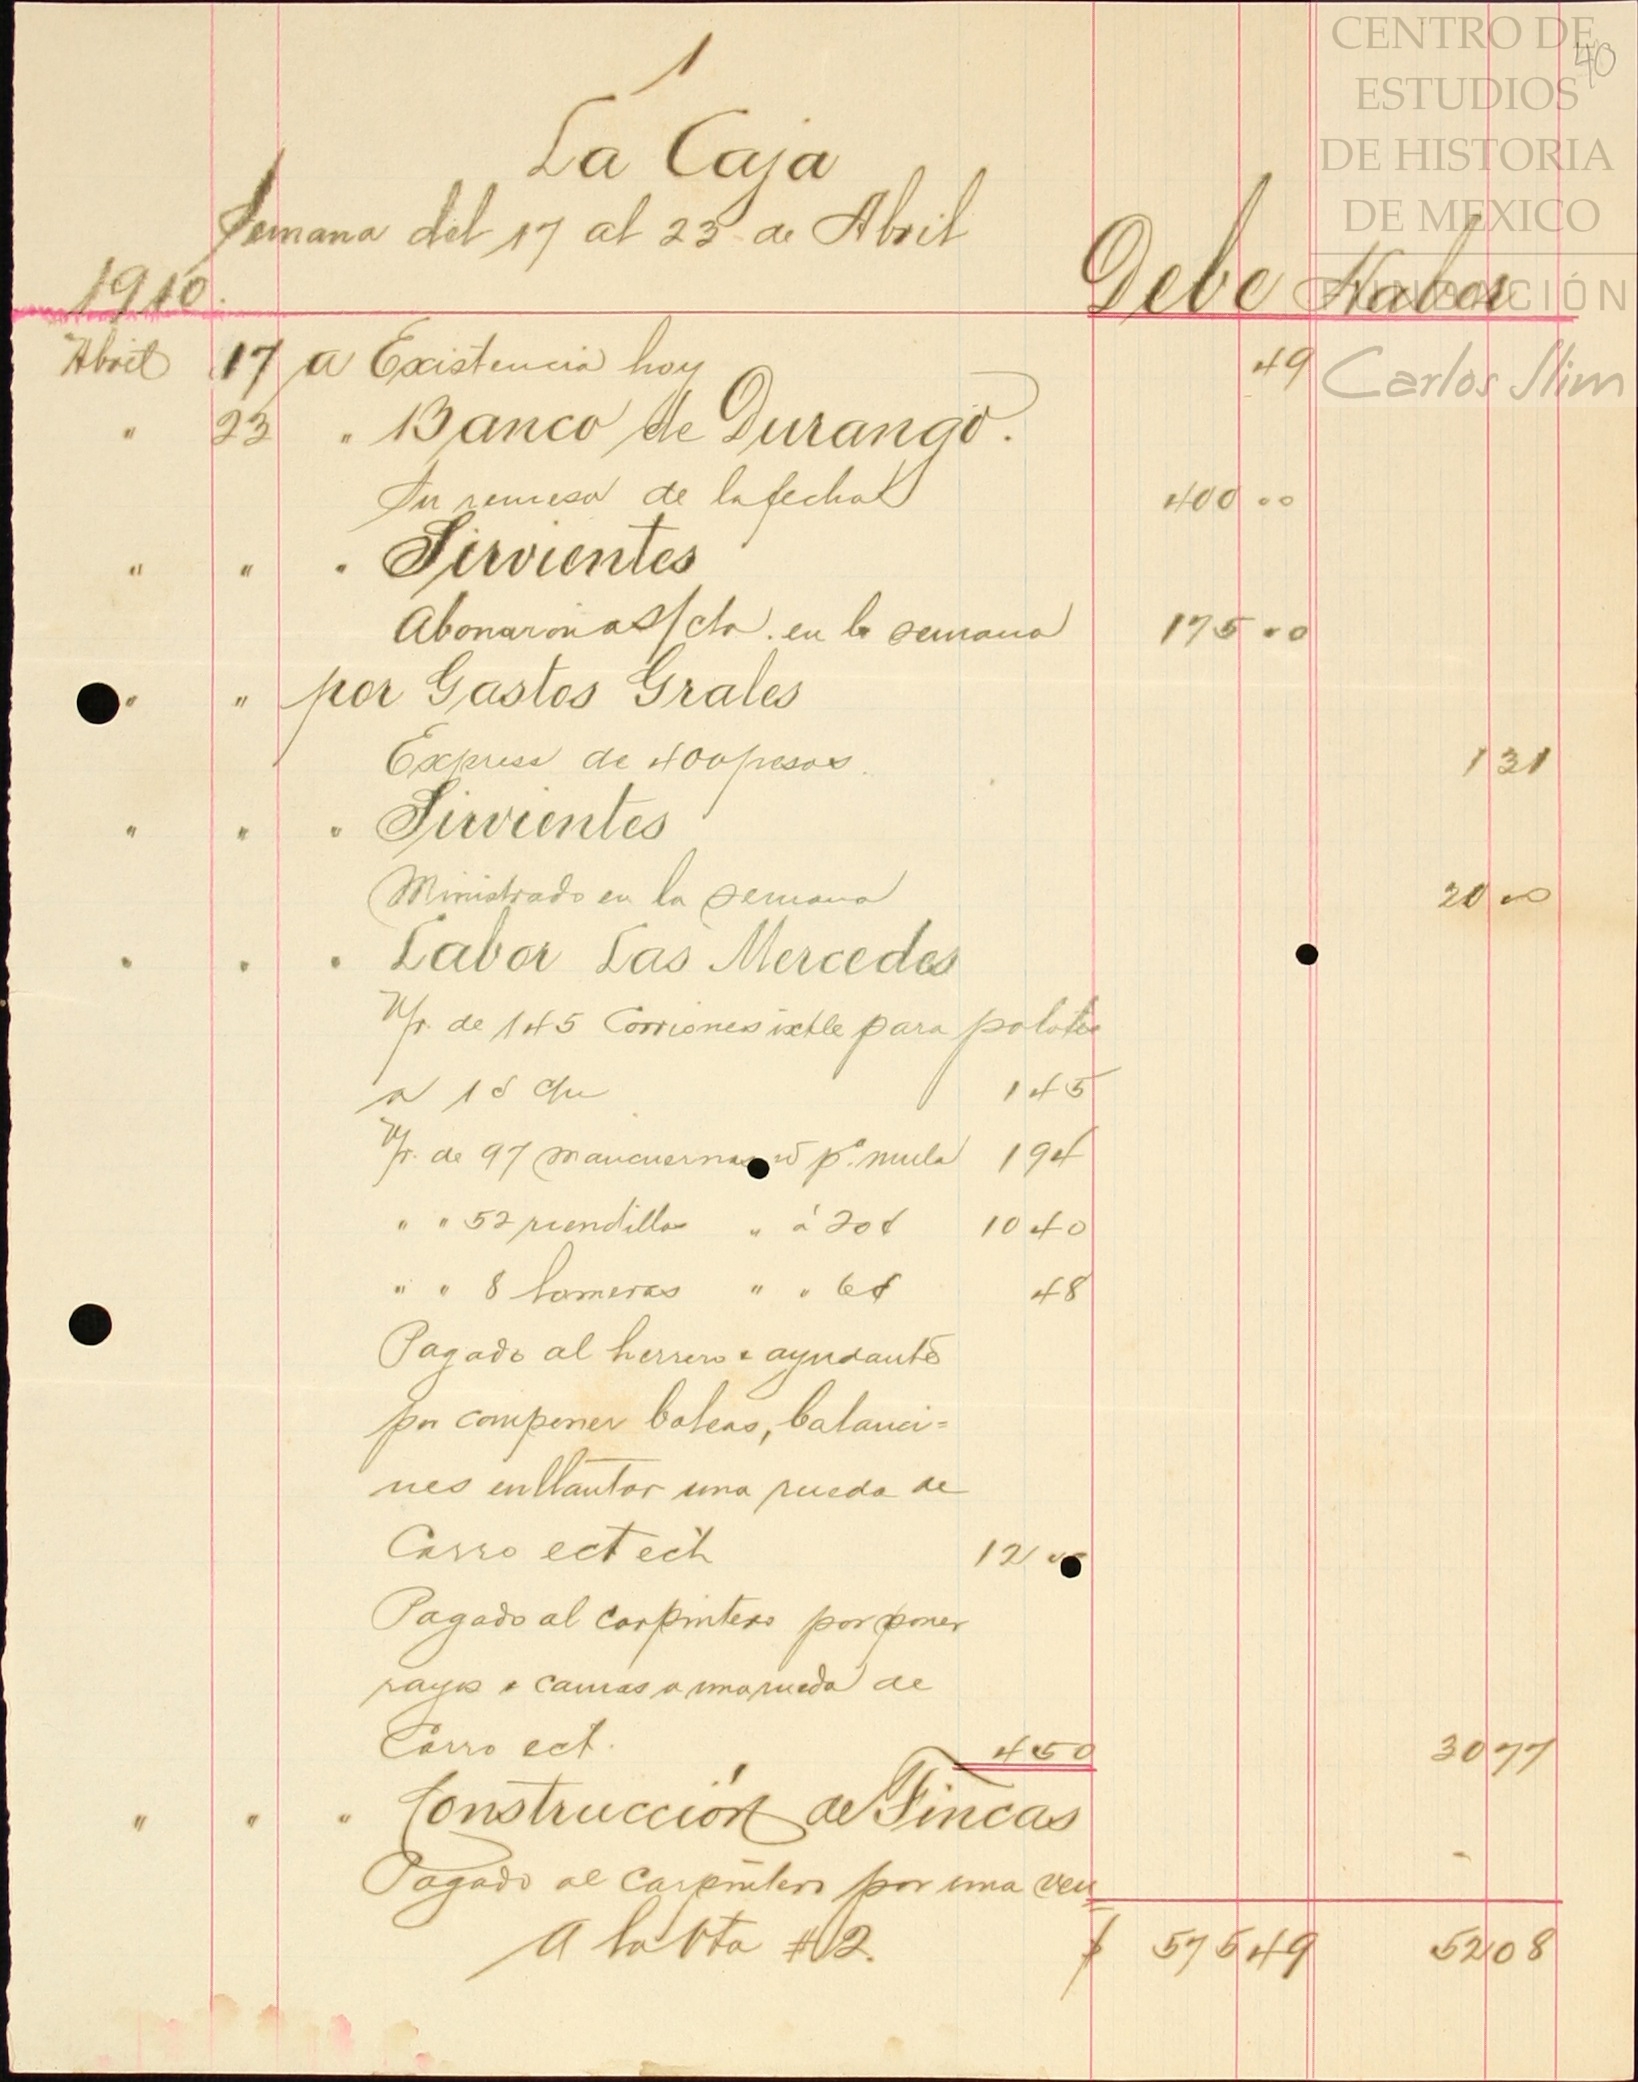 1
CENTRO DE
ESTUDIOS
DE HISTORIA
DE MEXICO
FUNDACIÓN
Carlos Slim
40
La Caja
Semana del 17 al 23 de Abril
1910.
Debe Haber
Abril 17 a Existencia hoy 49
" 23 " Banco de Durango.
Su remesa de la fecha 400 00
" " " Sirvientes
Abonaron a s/cta. en la semana 175 00
" " por Gastos Grales
Express de 400 pesos. 1 31
" " " Sirvientes
Ministrado en la semana 20 00
" " " Labor Las Mercedes
Vr. de 145 Corriones ixtle para
a 1¢ c/u 1 45
Vr. de 97 mancuernas pa. mula 1 94
" " 52 riendillas " á 20¢ 10 40
" " 8 lomeras " " 6¢ 48
Pagado al herrero & ayudante
por componer boleas, balanci=
nes enllantar una rueda de
Carro ect ect 12 00
Pagado al carpintero por poner
rayos & camas a una rueda de
Carro ect. 4 50 30 77
" " " Construcción de Fincas
Pagado al carpintero por una ven
A la vta # 2. $ 575 49 52 08